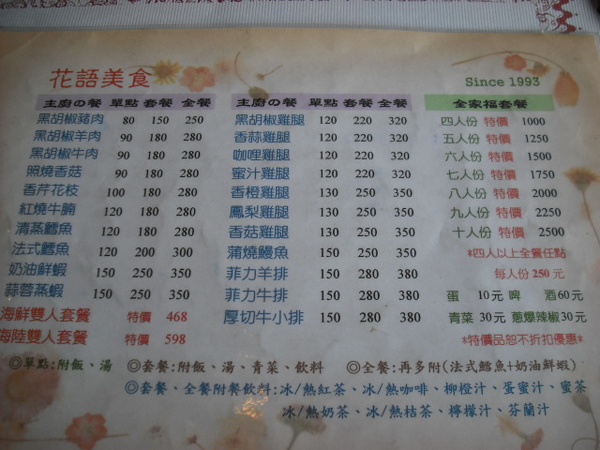 花語美食
Since 1993
主廚の餐 單點 套餐 全餐
黑胡椒豬肉 80 150 250
黑胡椒羊肉 90 180 280
黑胡椒牛肉 90 180 280
照燒香菇 90 180 280
香芹花枝 100 180 280
紅燒牛腩 120 180 280
清蒸鱈魚 120 180 280
法式鱈魚 120 200 300
奶油鮮蝦 150 250 350
蒜蓉蒸蝦 150 250 350
海鮮雙人套餐 特價 468
海陸雙人套餐 特價 598
主廚の餐 單點 套餐 全餐
黑胡椒雞腿 120 220 320
香蒜雞腿 120 220 320
咖哩雞腿 120 220 320
蜜汁雞腿 120 220 320
香橙雞腿 130 250 350
鳳梨雞腿 130 250 350
香菇雞腿 130 250 350
蒲燒鰻魚 150 250 350
菲力羊排 150 280 380
菲力牛排 150 280 380
厚切牛小排 150 280 380
全家福套餐
四人份 特價 1000
五人份 特價 1250
六人份 特價 1500
七人份 特價 1750
八人份 特價 2000
九人份 特價 2250
十人份 特價 2500
*四人以上全餐任點
每人份 250 元
蛋 10元 啤 酒60元
青菜 30元 蔥爆辣椒30元
*特價品恕不折扣優惠*
◎單點:附飯、湯 ◎套餐:附飯、湯、青菜、飲料 ◎全餐:再多附(法式鱈魚+奶油鮮蝦)
◎套餐、全餐附餐飲料:冰/熱紅茶、冰/熱咖啡、柳橙汁、蛋蜜汁、蜜茶
冰/熱奶茶、冰/熱桔茶、檸檬汁、芬蘭汁